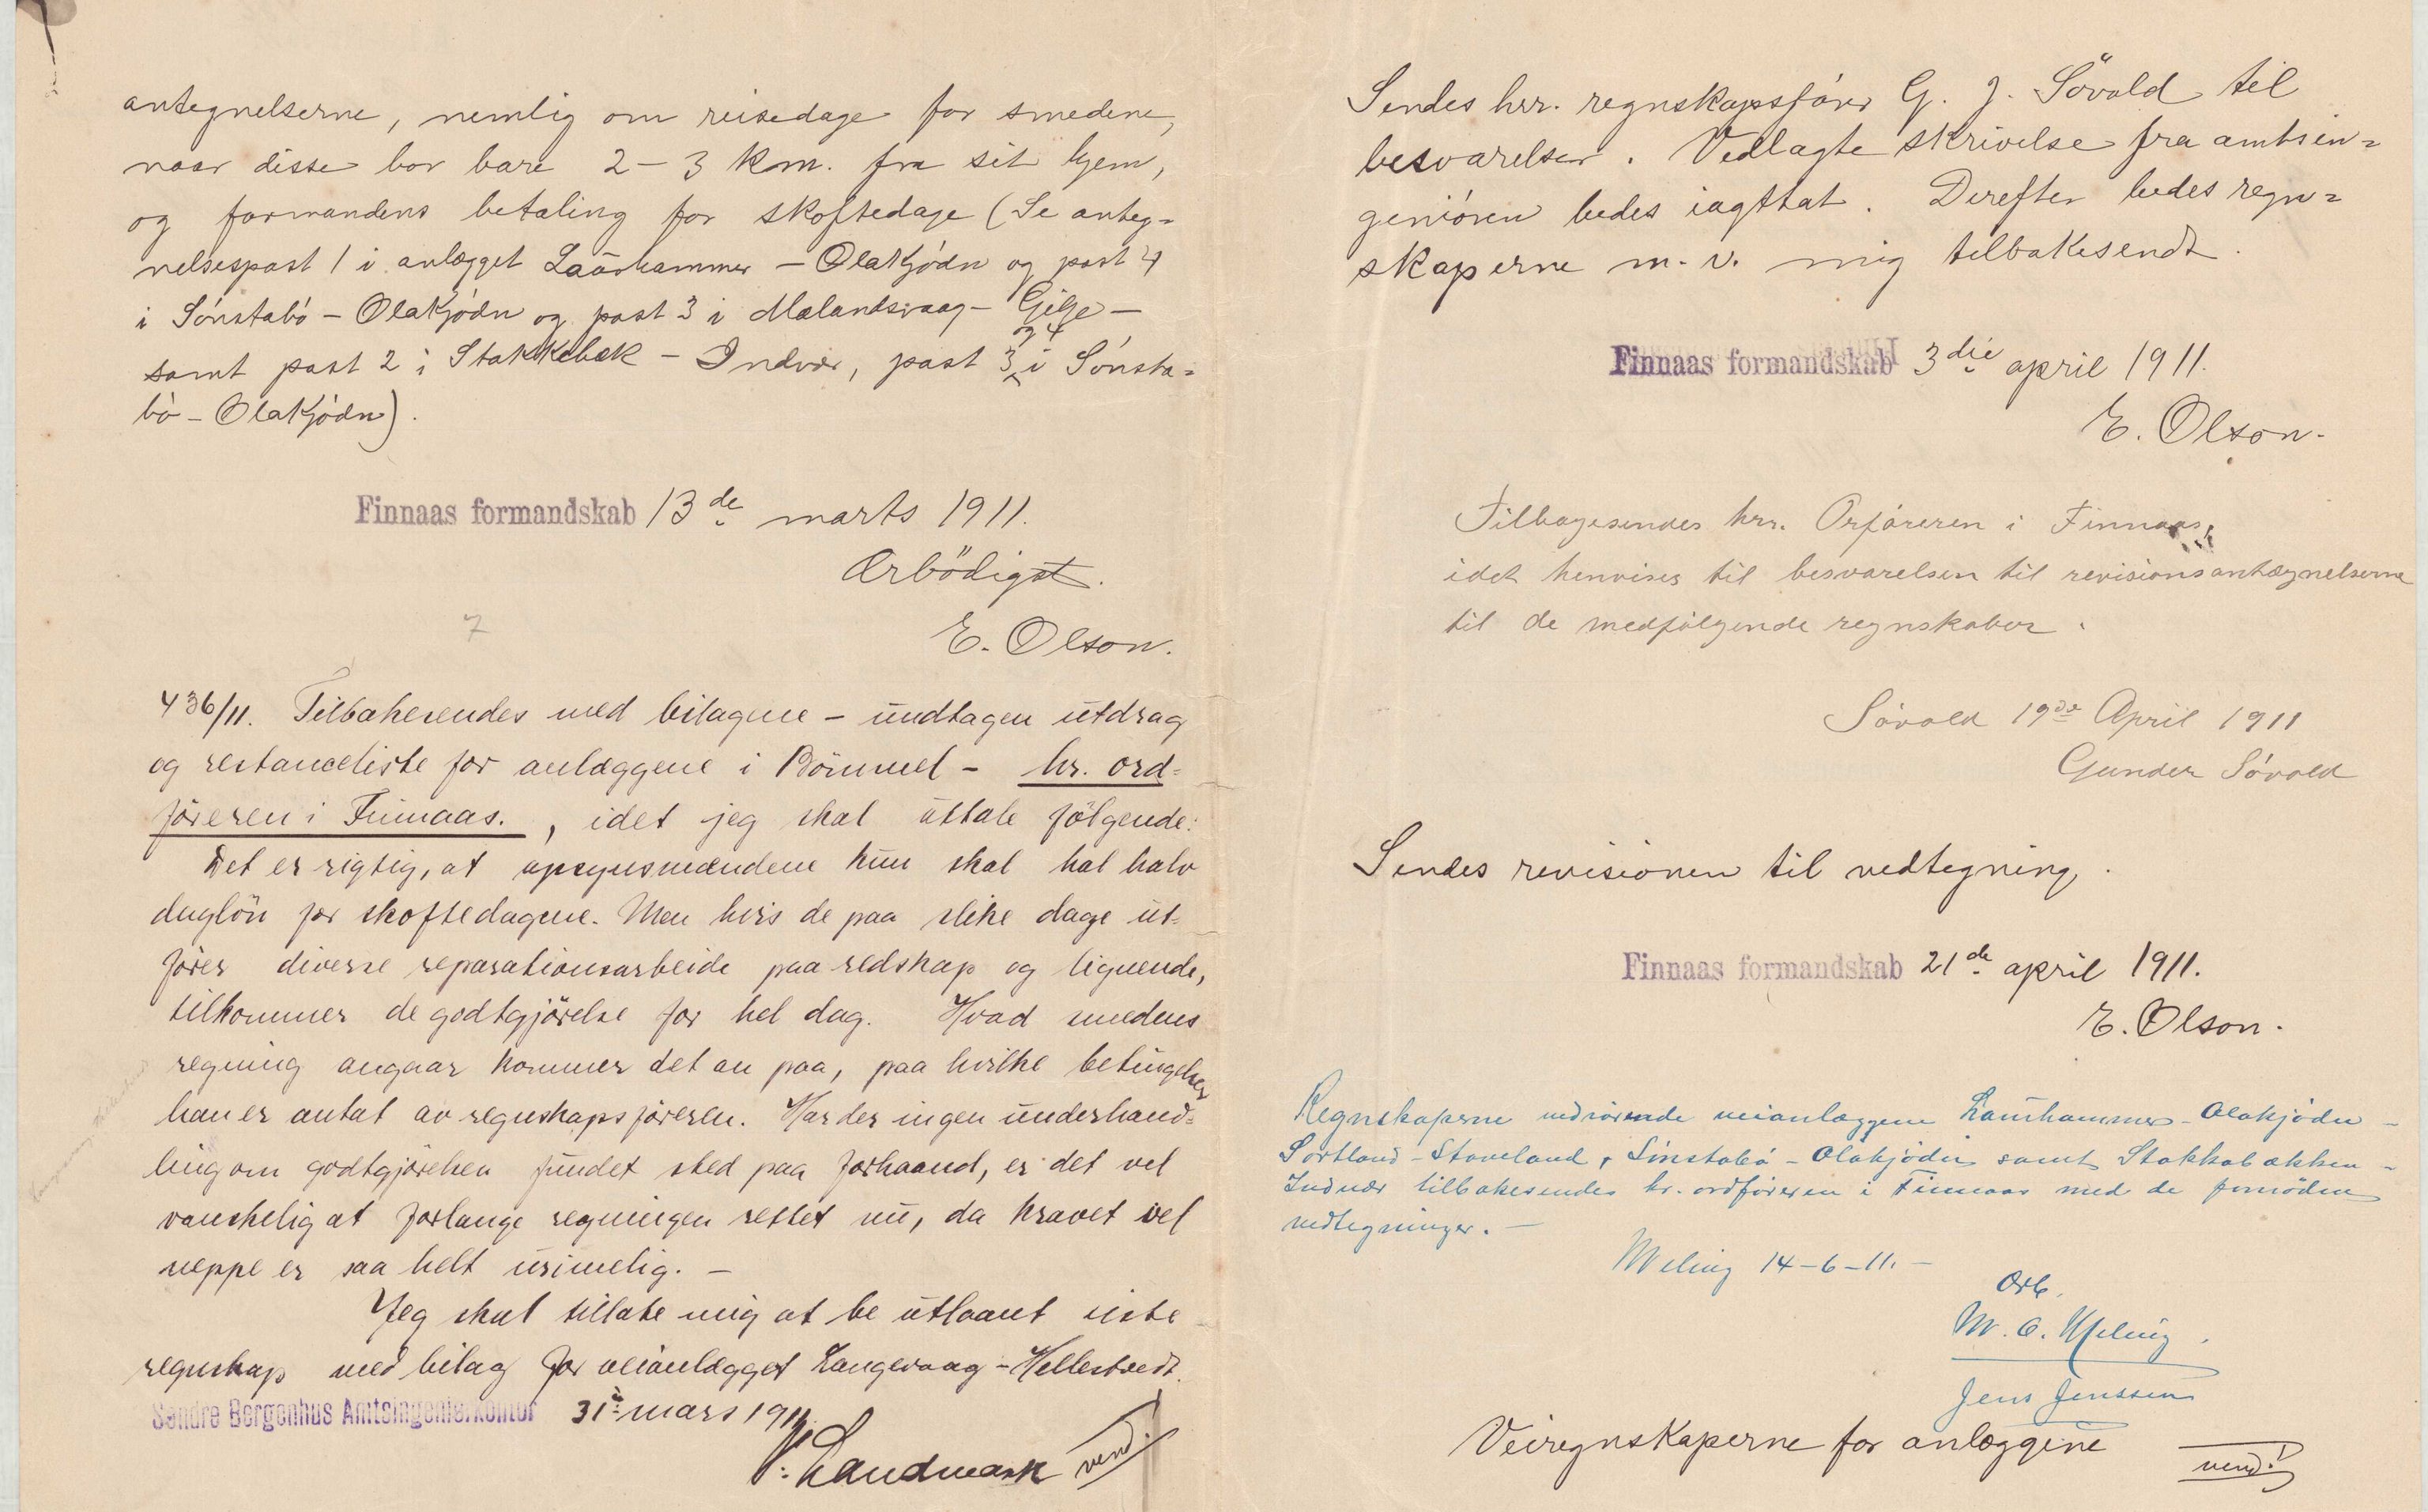 antegnelserne, nemlig om reisedage for smedene,
naar disse bor bare 2-3 km. fra sit hjem,
og formandens betaling for skoftedage (Se anteg=
nelsespost 1 i anlægget Laurhammer - Olakjödn og post 4
i Sönstabö - Olakjödn og post 3 i Mælandsvaag - Gilje -
samt post 2 i Stakkebæk - Indvær, post 3 og 4 i Sönsta=
bö - Olakjödn).
Finnaas formandskab 13de marts 1911.
Ærbödigst.
E. Olson.
7
436/11. Tilbakesendes med bilagene - undtagen utdrag
og restanceliste for anlæggene i Bömmel - hr. ord=
föreren i Finnaas., idet jeg skal uttale fölgende:
Det er rigtig, at opsynsmændene kun skal hal halv
daglön for skoftedagene. Men hvis de paa slike dage ut=
förer diverse reparationsarbeide paa redskap og lignende,
tilkommer de godtgjörelse for hel dag. Hvad smedens
regning angaar kommer det an paa, paa hvilke betingelser
han er antat av regnskapsföreren. Har der ingen underhand=
ling om godtgjörelsen fundet sted paa forhaand, er det vel
vanskelig at forlange regningen rettet nu, da kravet vel
neppe er saa helt urimelig. -
Jeg skal tillate mig at be utlaant siste
regnskap med bilag for veianlægget Langevaag - Hellestvedt.
Søndre Bergenhus Amtsingeniørkontor 31te mars 1911.
Landmark
vend!
Sendes hrr. regnskapsförer G. J. Sövold til
besvarelser. Vedlagte skrivelse fra amtsin=
geniören bedes iagttat. Derefter bedes regn=
skaperne m. v. mig tilbakesendt.
Finnaas formandskab 3die april 1911.
E. Olson.
Tilbagesendes hrr. Orföreren i Finnaas,
idet henvises til besvarelsen til revisionsantægnelserne
til de medfölgende regnskaber.
Sövold 19de April 1911
Gunder Sövold
Sendes revisionen til vedtegning.
Finnaas formandskab 21de april 1911.
E. Olson.
Regnskaperne vedrörende veianlæggene Laurhammer - Olakjödn -
Sortland - Staveland, Sönstabö - Olakjödn samt Stakkabækken -
Indvær tilbakesendes hr. ordföreren i Finnaas med de fornödne
vedtegninger. -
Meling 14-6-11. -
Ærb.
M. O. Meling.
Jens Jenssen
Veiregnskaperne for anlæggene
vend!